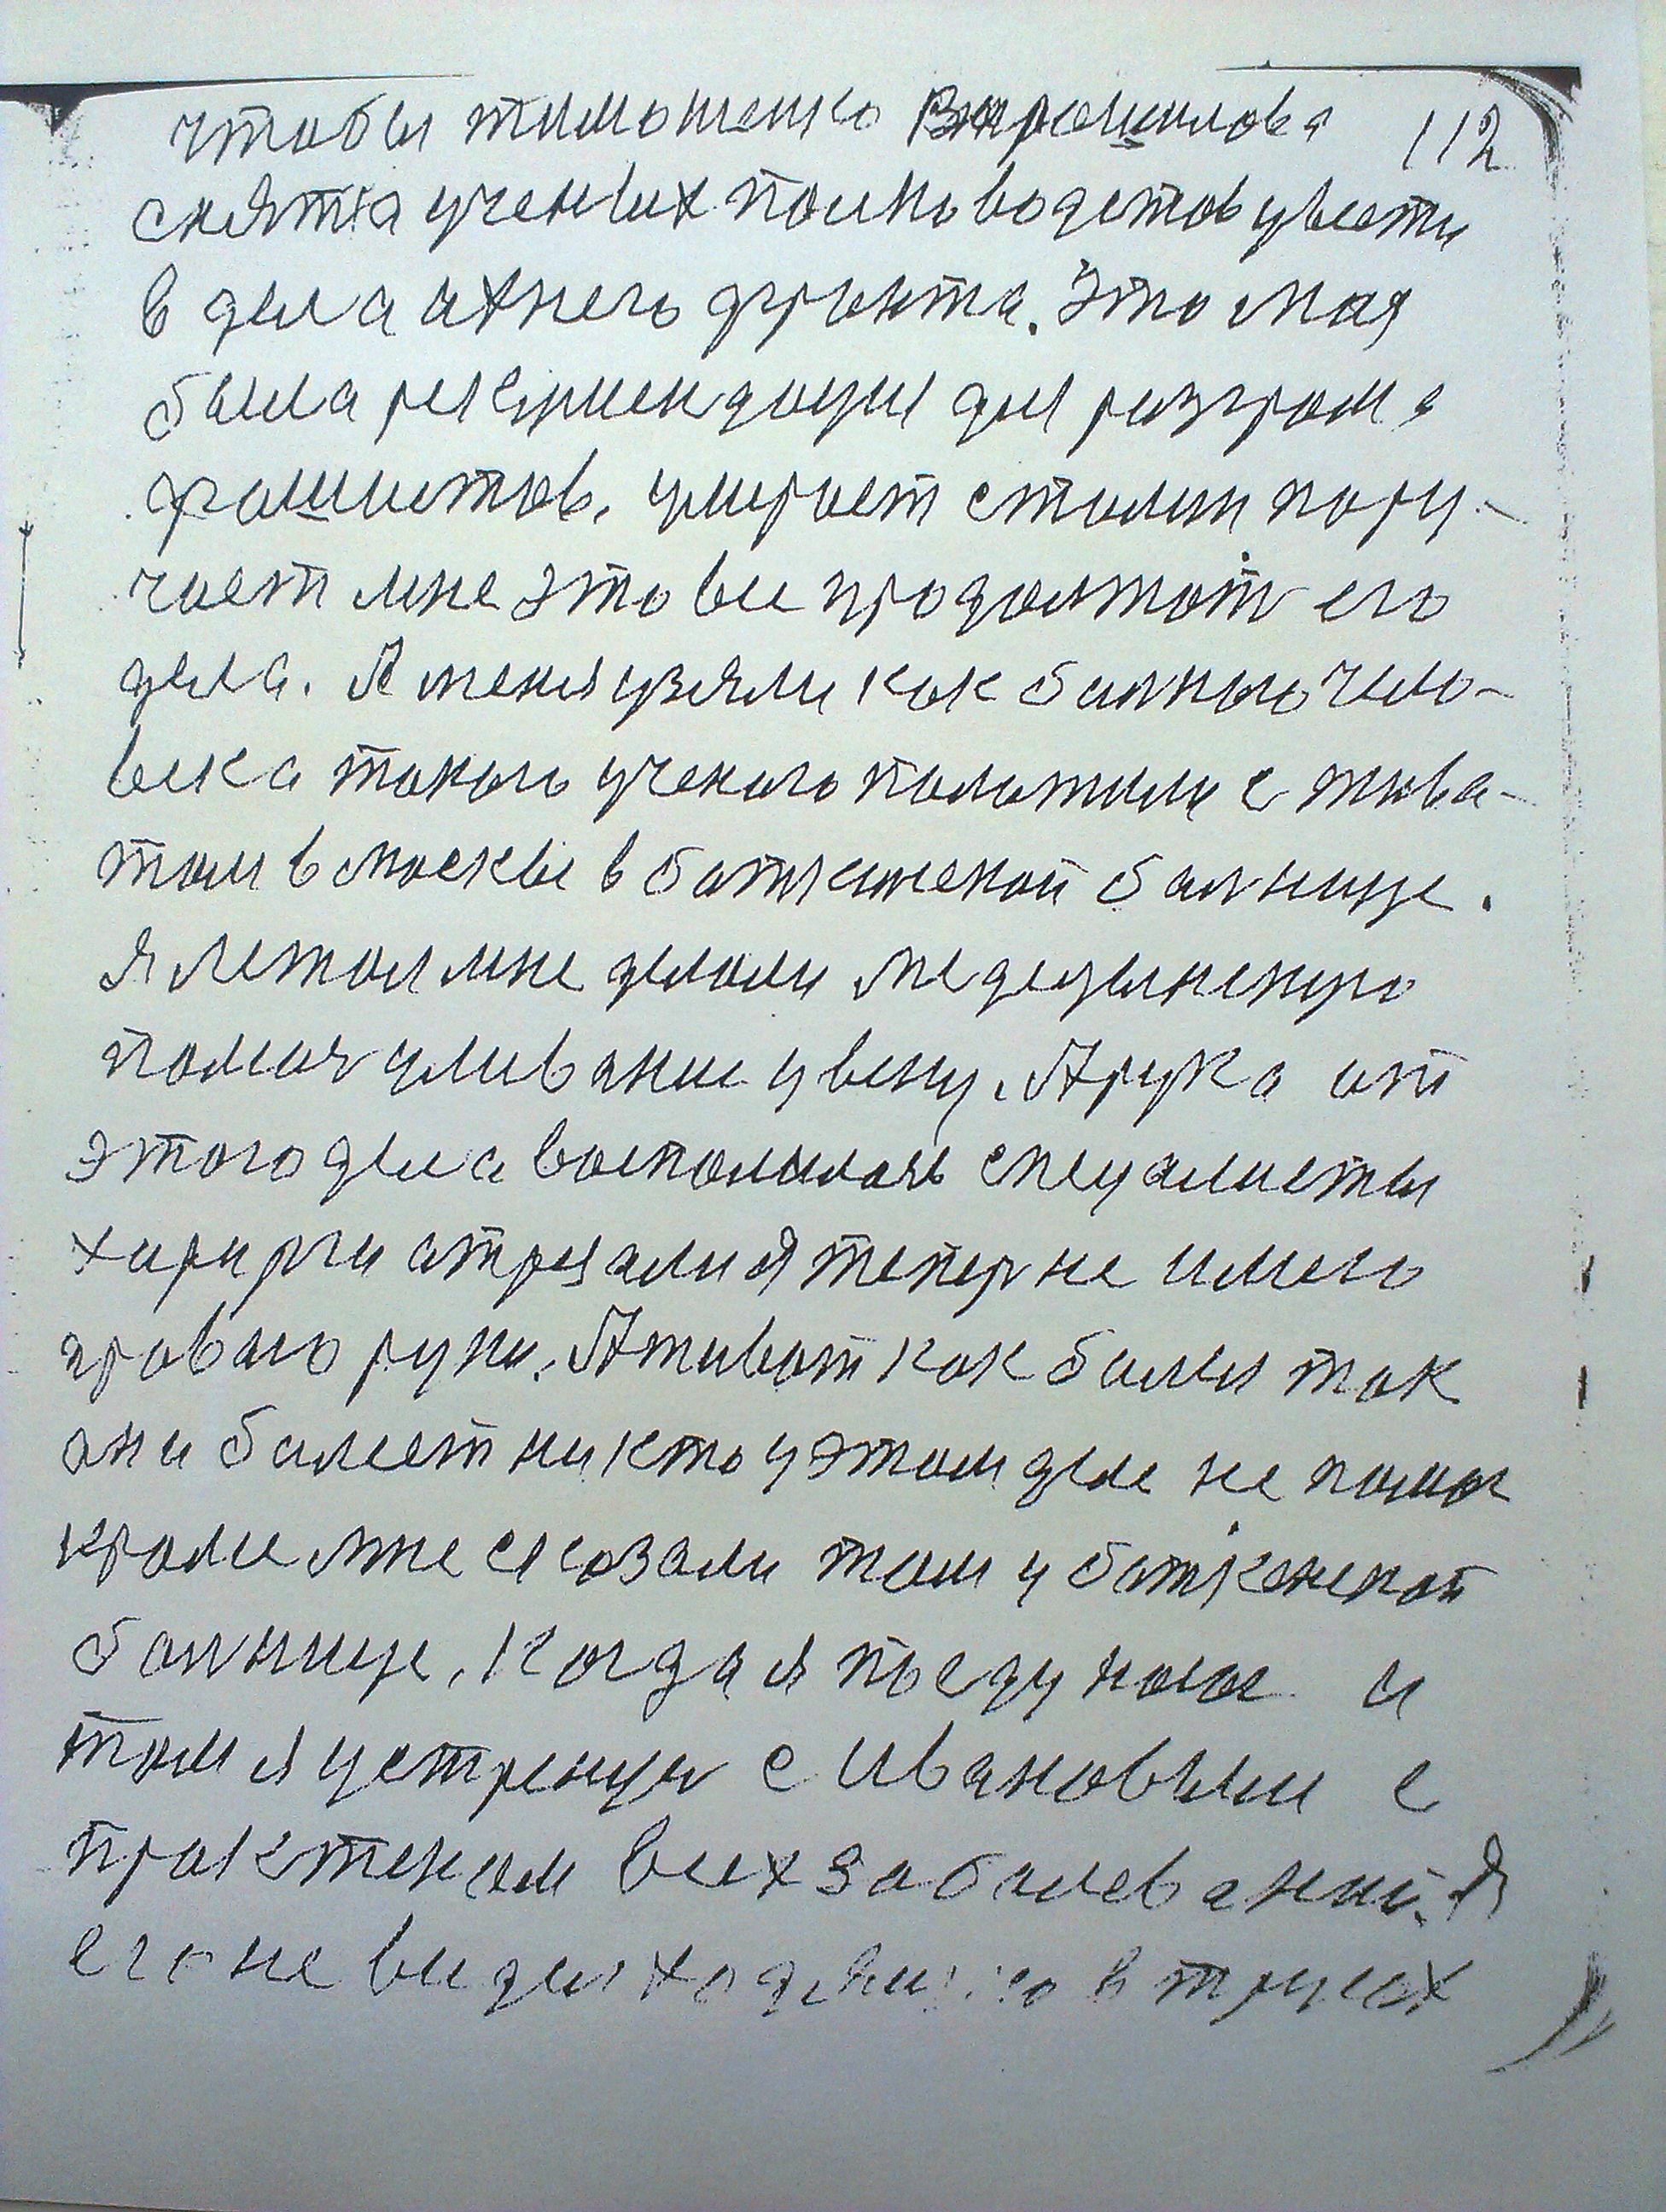 чтобы тимошенко Варошилова 112
снять а ученых полководетов увести
в дела ахнего фронта. Это мая
была рекоминдации для разгрома
фашистов. умирает сталин пору-
чает мне это все продолжат его
дела. А меня узяли как балного чило-
века такого ученого положили с жива-
том в москве в баткинской балнице.
Я лежал мне делали медецинскую
помоч уливание у вену. А рука от
этого дела воспалилась спецалисты
хирурги атрезали я тепер не имею
правого руки. А живот как балел так
они балеет никто у этом деле не помог
кроме мне сказали там у баткенской
балнице. Когда я поеду на юг и
там я устренус с Ивановым с
практиком всех забалеваний. Я
его не видел ходящего в трусах